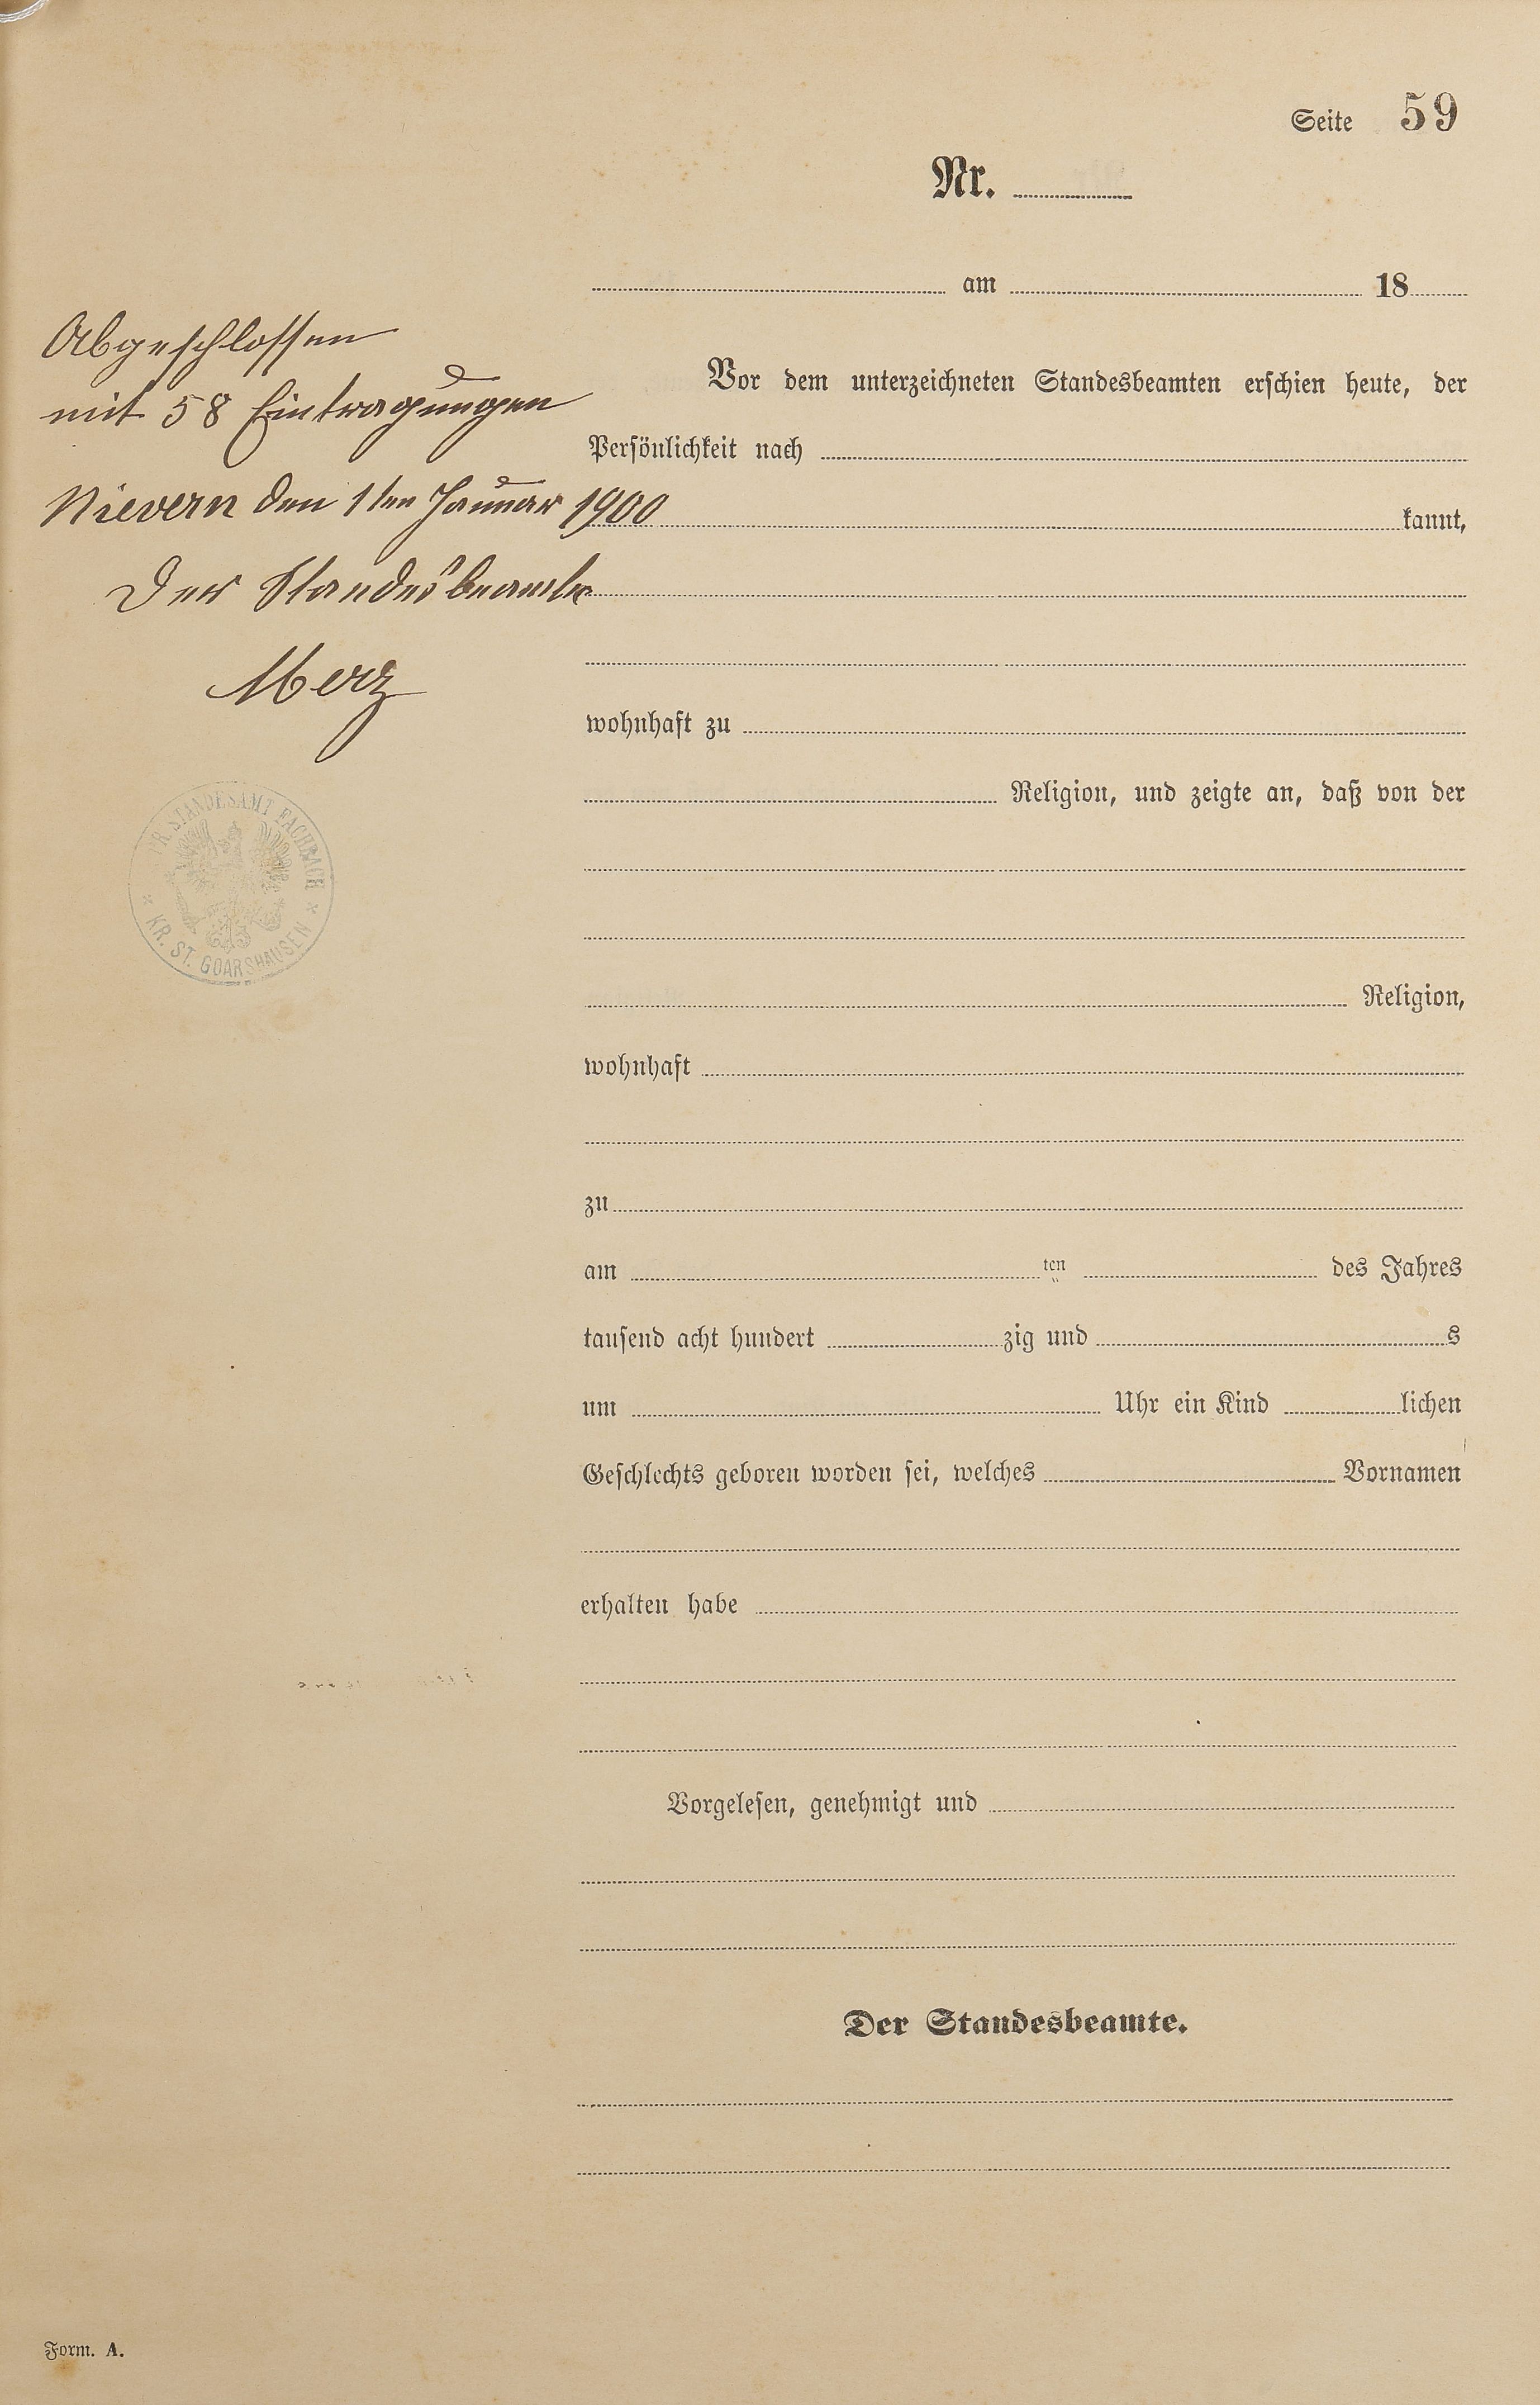 Seite 59
Nr.
am 18
Abgeschlossen
mit 58 Eintragungen
Nievern den 1ten Januar 1900
Der Standesbeamte
Merz
PR. STANDESAMT FACHBACH
* KR. ST. GOARSHAUSEN *
Vor dem unterzeichneten Standesbeamten erschien heute, der
Persönlichkeit nach
kannt,
wohnhaft zu
Religion, und zeigte an, daß von der
Religion,
wohnhaft
zu
am ten des Jahres
tausend acht hundert zig und s
um Uhr ein Kind lichen
Geschlechts geboren worden sei, welches Vornamen
erhalten habe
Vorgelesen, genehmigt und
Der Standesbeamte.
Form. A.